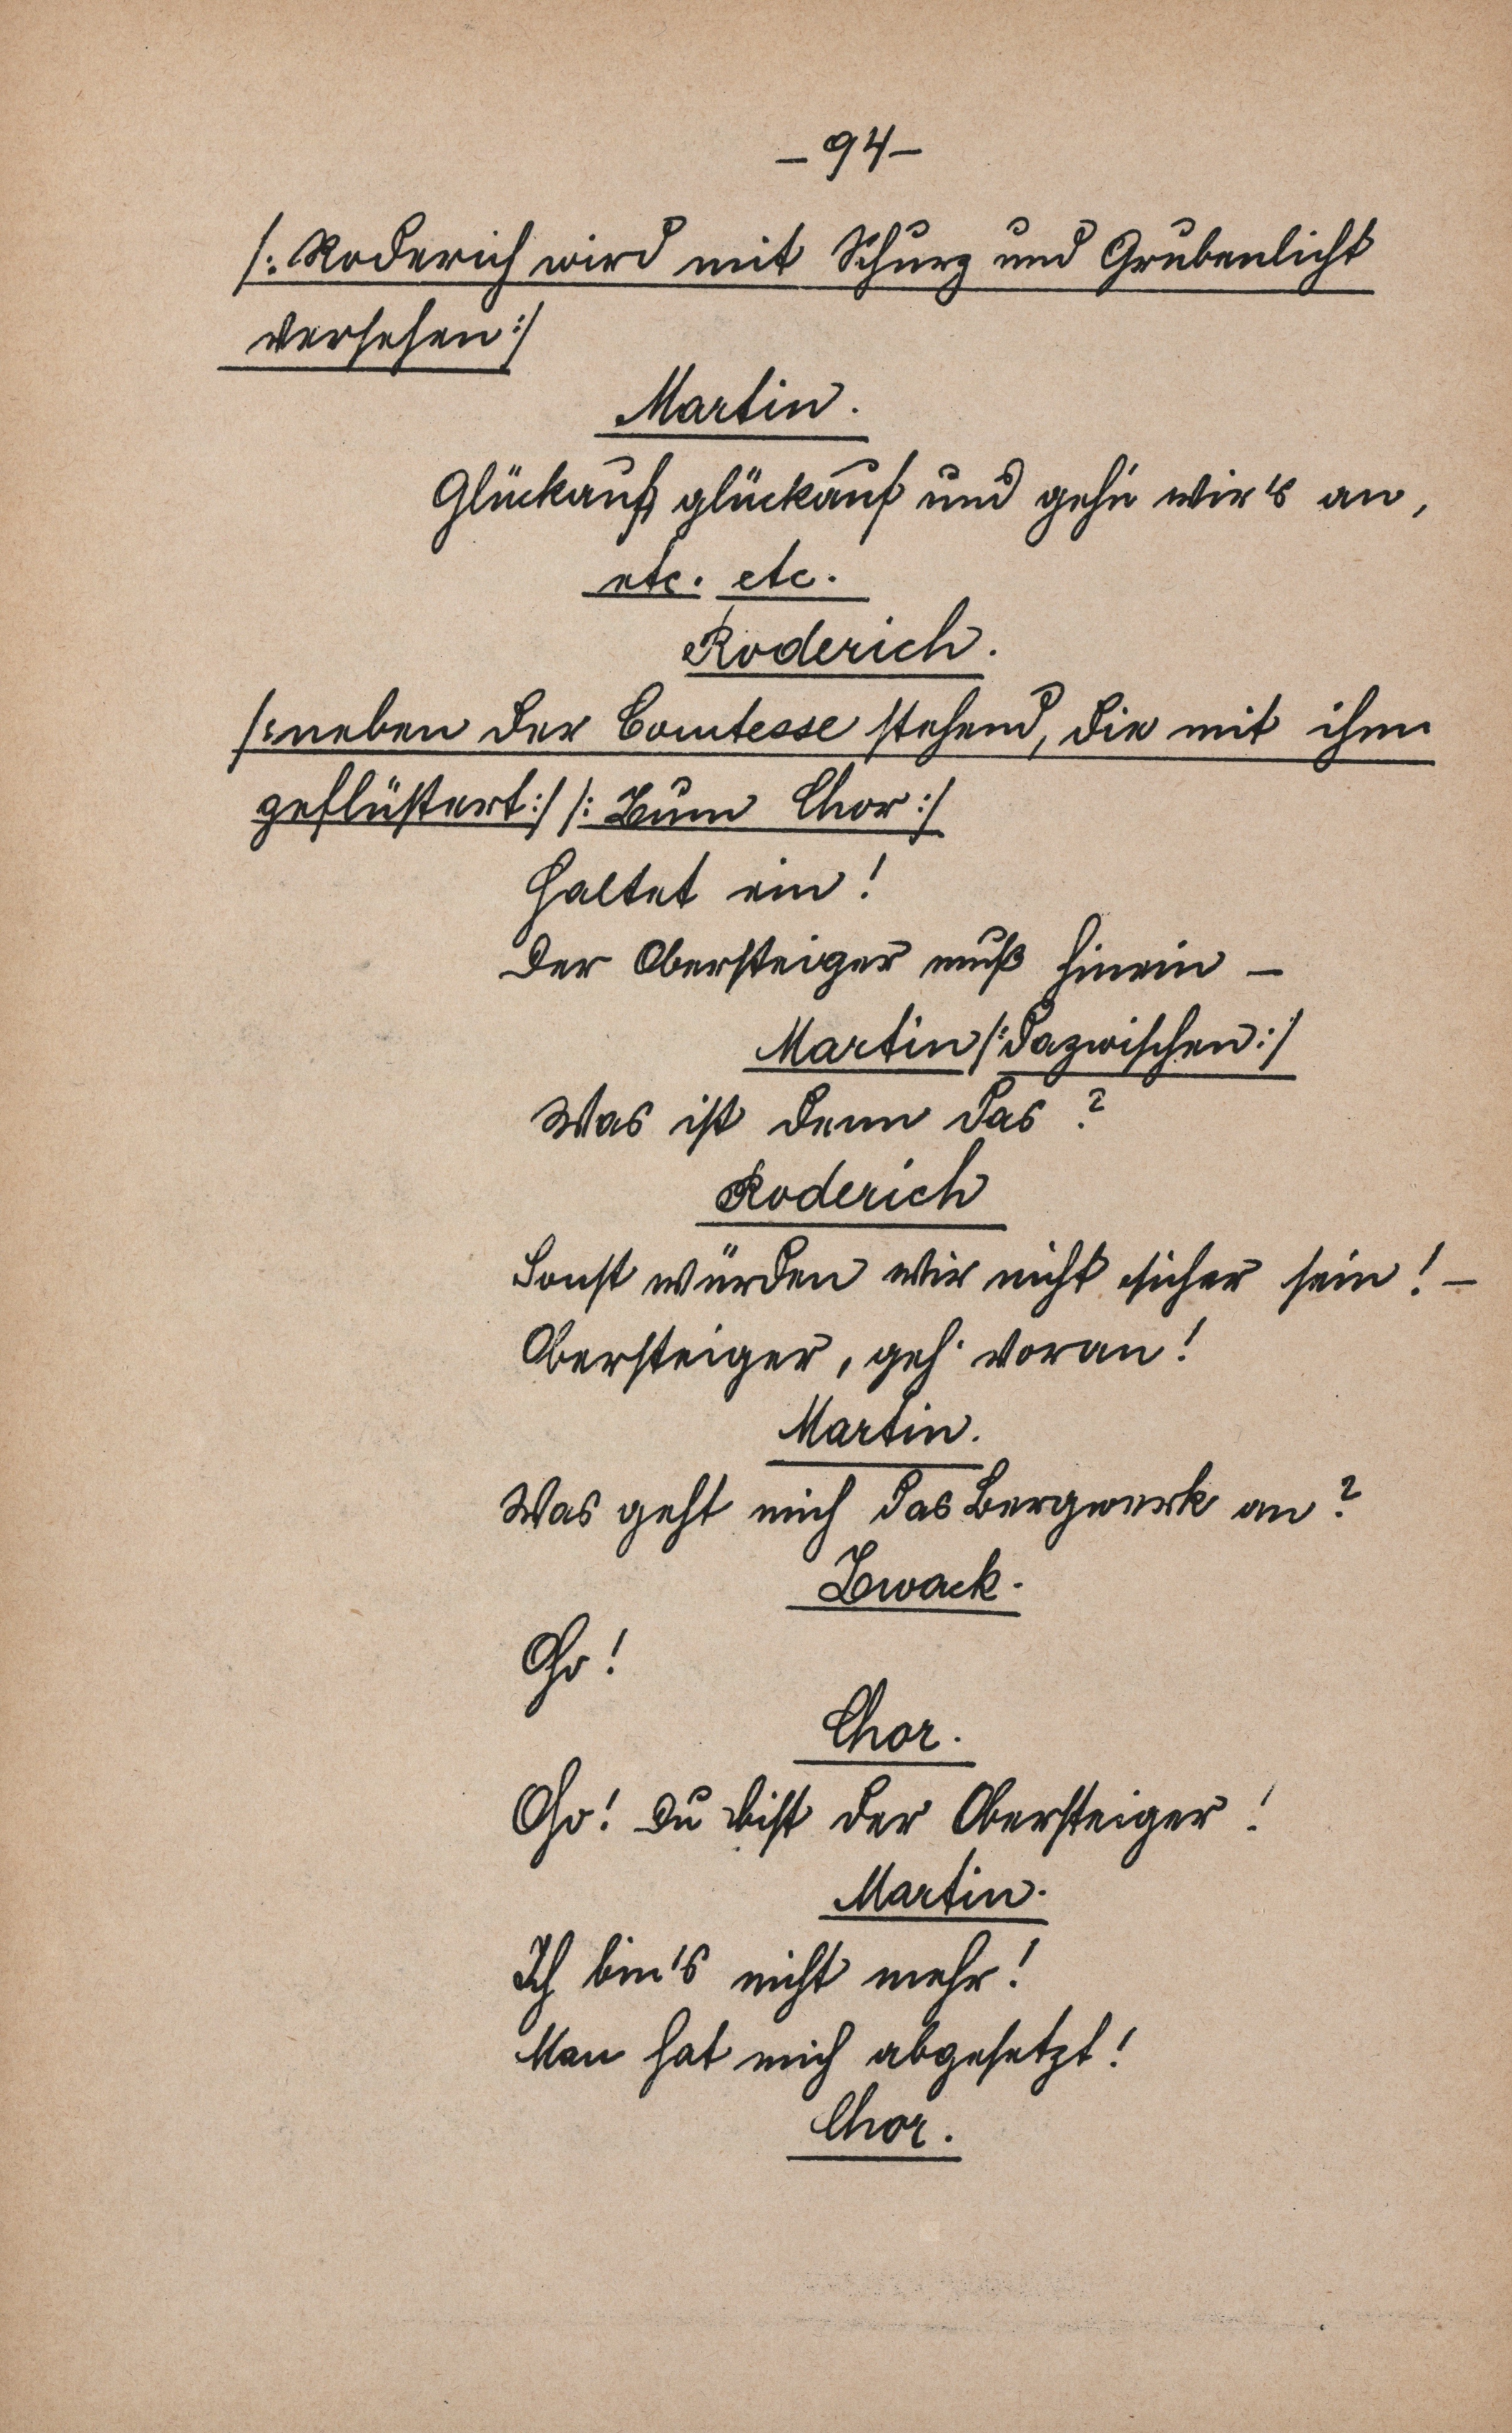 - 94 -
/: Roderich wird mit Schurz und Grubenlicht
versehen :/
Martin.
Glückauf, glückauf und geh'n wir's an,
etc. etc.
Roderich.
/: neben der Comtesse stehend, die mit ihm
geflüstert :/ /: Zum Chor :/
Haltet ein!
Der Obersteiger muß hinein -
Martin /: dazwischen :/
Was ist denn das?
Roderich
Sonst würden wir nicht sicher sein! -
Obersteiger, geh' voran!
Martin.
Was geht mich das Bergwerk an?
Zwack.
Oho!
Chor.
Oho! Du bist der Obersteiger!
Martin.
Ich bin's nicht mehr!
Man hat mich abgesetzt!
Chor.